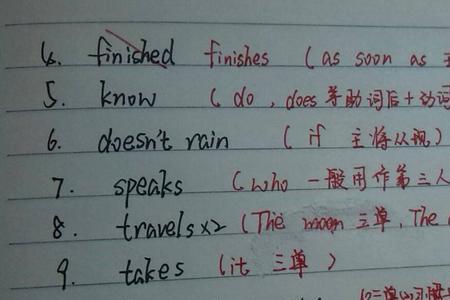 4. finished finishes (as soon as 主
5. know (do, does等助词后+动词
6. doesn't rain (if 主将从现)
7. speaks (who 一般用作第三人
8. travels×2 (The moon 三单, The
9. takes (it 三单)